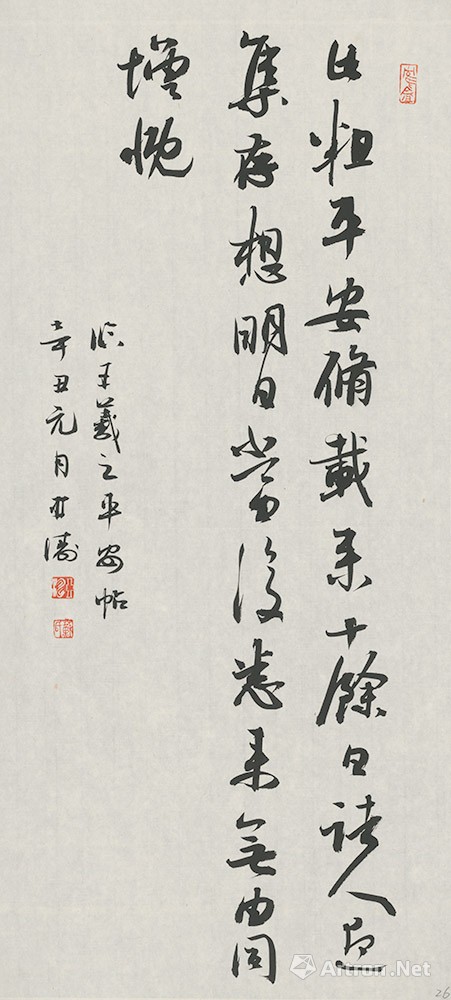 此粗平安脩載来十餘日諸人近
集存想明日當復悉来無由同
增慨
臨王羲之平安帖
辛丑元月
Artron.Net
26